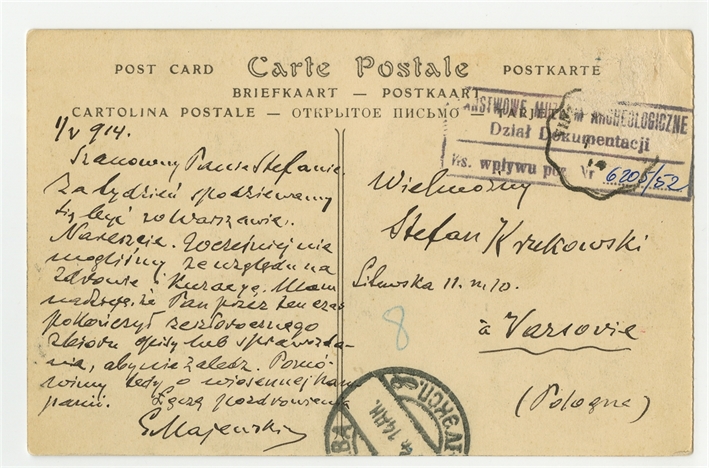 POST CARD Carte Postale POSTKARTE
BRIEFKAART — POSTKAART
CARTOLINA POSTALE — ОТКРЫТОЕ ПИСЬМО — TARJETA
PAŃSTWOWE MUZEUM ARCHEOLOGICZNE
Dział Dokumentacji
Ks. wpływu poz. Nr 6205/52
1/V 914.
Szanowny Panie Stefanie.
Za tydzień spodziewamy
się być w Warszawie.
Nareszcie. Wcześniej nie
mogliśmy ze względu na
zdrowie i kurację. Mam
nadzieję że Pan przez ten czas
pokończył zeszłorocznego
zbioru opisy lub sprawozda-
nia, aby nie zaledz. Pomó-
wimy tedy o wiosennej kam
panii. Łączę pozdrowienia
E. Majewski
Wielmożny
Stefan Krukowski
11. m. 10.
à Varsovie
(Pologne)
8